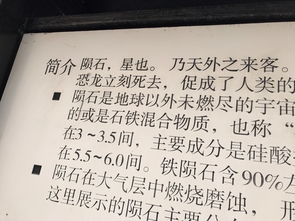 简介 陨石，星也。 乃天外之来客。
恐龙立刻死去，促成了人类的
■ 陨石是地球以外未燃尽的宇宙
的或是石铁混合物质，也称“
在3～3.5间，主要成分是硅酸
在5.5～6.0间。铁陨石含90%左
■ 陨石在大气层中燃烧磨蚀，形
这里展示的陨石主要